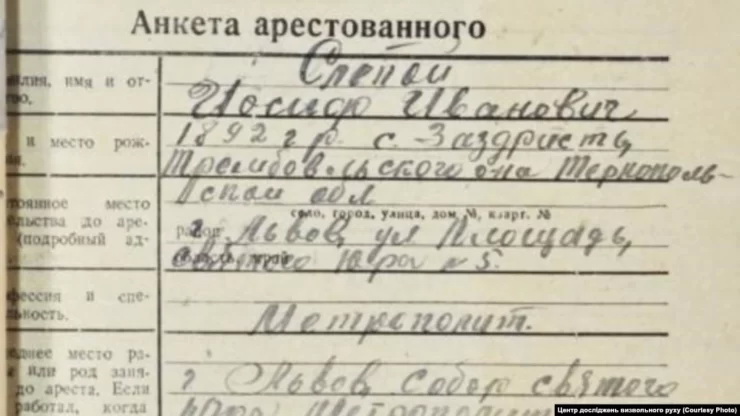 Анкета арестованного
илия, имя и от-
во.
Слепой
Иосиф Иванович
и место рож-
1892 г р. с. Заздрість,
Трембовльского р-на Тернополь-
ской обл
тоянное место
ельства до аре-
(подробный ад-
село, город, улица, дом №, кварт. №
район
г. Львов, ул Площадь,
Святого Юра № 5.
фессия и спе-
льность.
Митрополит.
днее место ра-
или род заня-
до ареста. Если
работал, когда
г Львов Собор святого
Юра
Центр досліджень визвольного руху (Courtesy Photo)